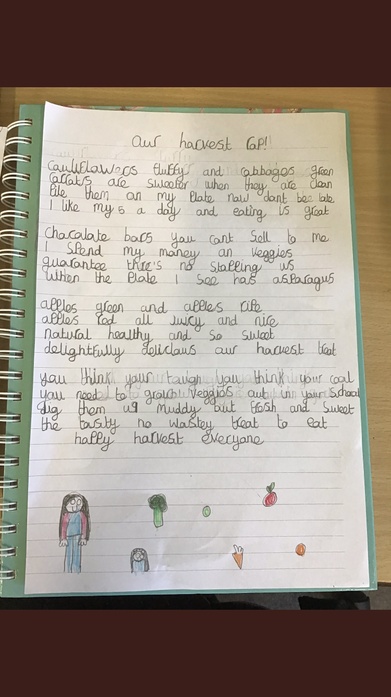 our harvest rap!
cauliflowers fluffy and cabbages green
carrots are sweeter when they are clean
pile them on my plate now dont be late
I like my 5 a day and eating is great
chocolate bars you cant sell to me
I spend my money on veggies
guarantee there's no stopping us
when the plate I see has asparagus
apples green and apples ripe
apples red all juicy and nice
natural healthy and so sweet
delightfully delicious our harvest treat
you think your tough you think your cool
you need to grow veggies out in your school
dig them up muddy but fresh and sweet
the tasty no wastey treat to eat
happy harvest everyone